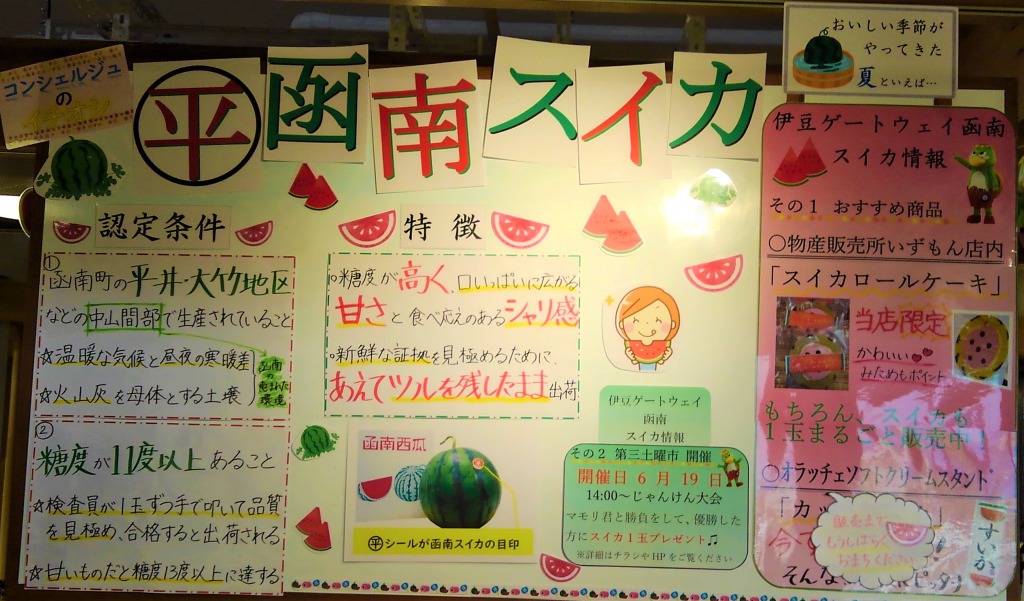 コンシェルジュ
の
イチオシ
平 函南スイカ
認定条件
①
函南町の平井・大竹地区
などの中山間部で生産されていること
☆温暖な気候と昼夜の寒暖差
☆火山灰を母体とする土壌
函南の
恵まれた
環境
②
糖度が11度以上あること
☆検査員が1玉ずつ手で叩いて品質
を見極め、合格すると出荷される
☆甘いものだと糖度13度以上に達する
特徴
○糖度が高く、口いっぱいに広がる
甘さと食べ応えのあるシャリ感
○新鮮な証拠を見極めるために、
あえてツルを残したまま出荷
函南西瓜
平シールが函南スイカの目印
伊豆ゲートウェイ
函南
スイカ情報
その2 第三土曜市 開催
開催日6月19日
14:00～じゃんけん大会
マモリ君と勝負をして、優勝した
方にスイカ1玉プレゼント♫
※詳細はチラシやHPをご覧ください
おいしい季節が
やってきた
夏といえば…
伊豆ゲートウェイ函南
スイカ情報
その1 おすすめ商品
○物産販売所いずもん店内
「スイカロールケーキ」
当店限定
かわいい
みためもポイント
もちろん、スイカも
1玉まるごと販売中！
○オラッチェソフトクリームスタンド
「カッ 」
今す
販売まで
もうしばらく
おまちください
そんな ピッタリ
すいか